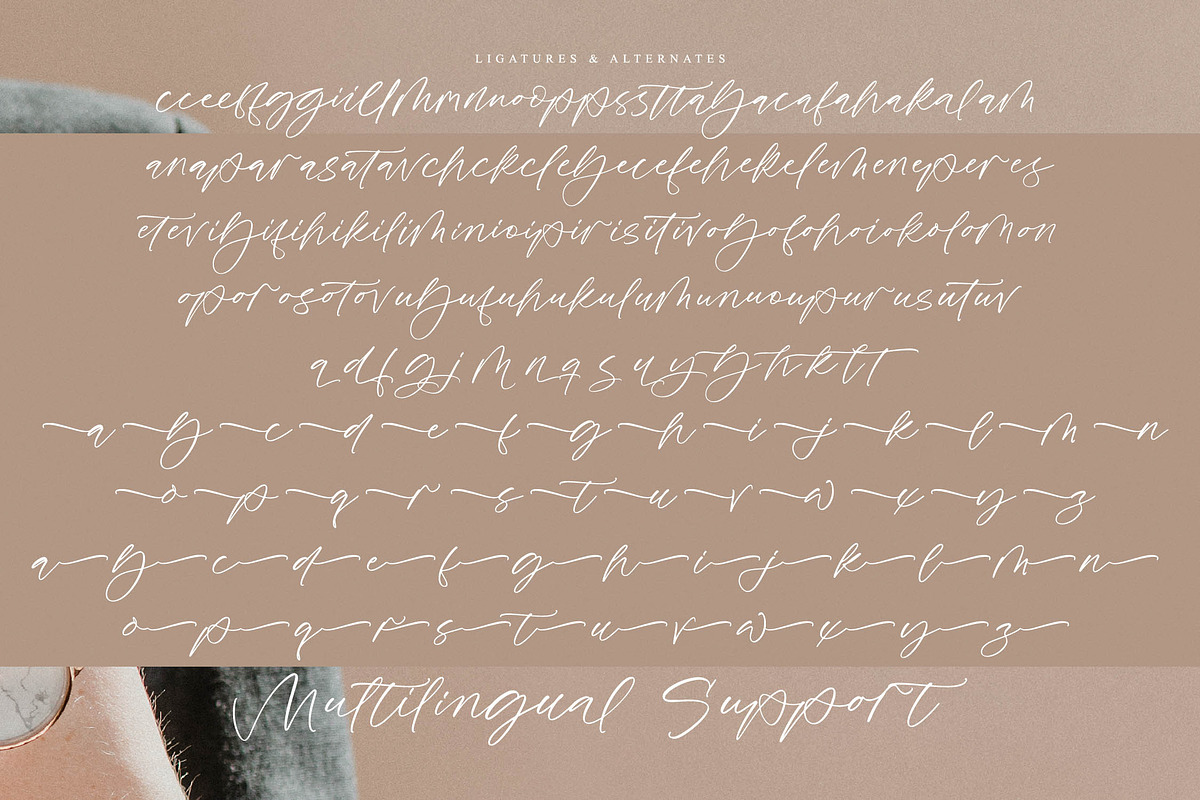 LIGATURES & ALTERNATES
cceeffggiillmmnnooppssttabacafahakalam
anaparasatavchckclebecefehekelemeneperes
etevibifihikiliminioipirisitivobofohoiokolomon
oporosotovubufuhukulumunuoupurusutuv
adfgjmnqsuybhktt
a b c d e f g h i j k l m n
o p q r s t u v w x y z
a b c d e f g h i j k l m n
o p q r s t u v w x y z
Multilingual Support